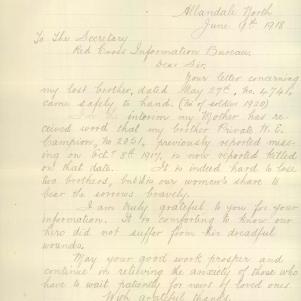 Allandale North
June 9th 1918
To The Secretary
Red Cross Information Bureau.
Dear Sir,
Your letter concerning
my lost brother, dated May 27th, No. 4741,
came safely to hand. (No of soldier 1920)
In the interim my Mother has re
ceived word that my brother Private W. E.
Champion, No 2251, previously reported miss
ing on Oct 8th 1917, is now reported killed
on that date. It is indeed hard to lose
two brothers, but it is our women's share to
bear the sorrows bravely.
I am truly grateful to you for your
information. It is comforting to know our
hero did not suffer from his dreadful
wounds.
May your good work prosper and
continue in relieving the anxiety of those who
have to wait patiently for news of loved ones.
With grateful thanks